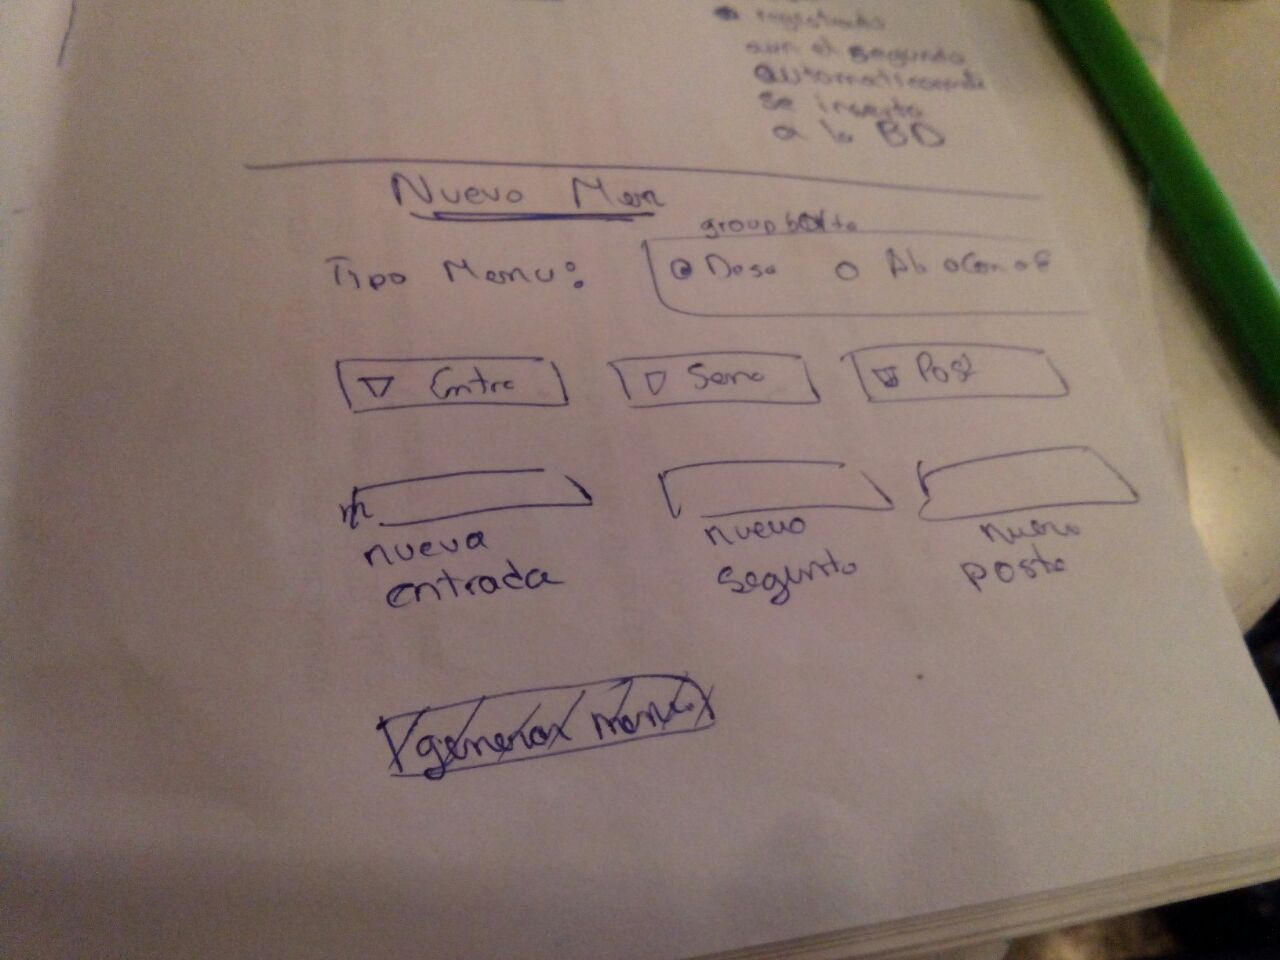 aun el segundo
automaticamente
se inserta
a la BD
Nuevo Men
groupboxto
Tipo Menu:
Desa
Entra
Post
nueva
entrada
nuevo
segundo
nuevo
poste
generar menu